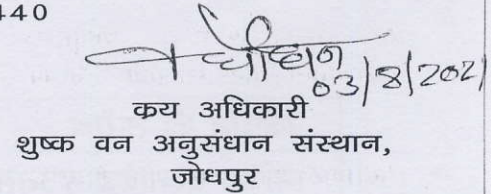 440
चौधन
03/8/2021
क्रय अधिकारी
शुष्क वन अनुसंधान संस्थान,
जोधपुर